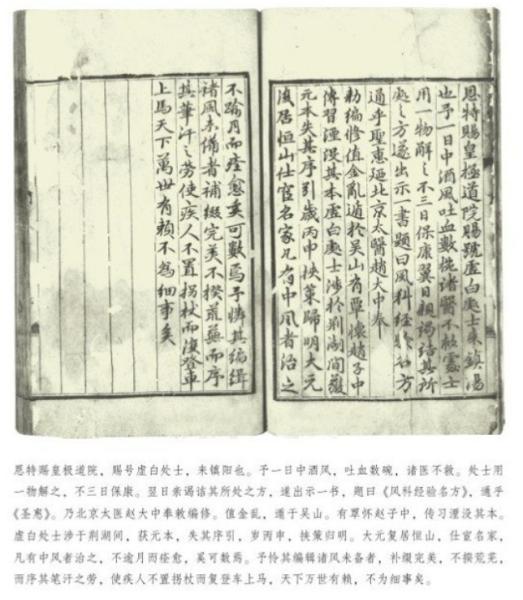 恩特賜皇極道院賜號虛白處士来鎮陽
也予一日中酒風吐血數椀諸醫不救處士
用一物解之不三日保康翼日親謁詰其所
處之方遂出示一書題曰風科經驗名方
通乎聖惠廼北京太醫趙大中奉
勑編修值金亂遁於吳山有覃懷趙子中
傳習湮沒其本虛白處士涉於荆湖間獲
元本失其序引歲丙申挾策歸明大元
復居恒山仕宦名家凡有中風者治之
不踰月而痊愈奚可數焉予憐其編緝
諸風未備者補綴完美不揆荒蕪而序
其筆汗之勞使疾人不置拐杖而復登車
上馬天下萬世有賴不為細事矣
恩特赐皇极道院，赐号虚白处士，来镇阳也。予一日中酒风，吐血数碗，诸医不救。处士用
一物解之，不三日保康。翌日亲谒诘其所处之方，遂出示一书，题曰《风科经验名方》，通乎
《圣惠》。乃北京太医赵大中奉敕编修。值金乱，遁于吴山。有覃怀赵子中，传习湮没其本。
虚白处士涉于荆湖间，获元本，失其序引，岁丙申，挟策归明。大元复居恒山，仕宦名家，
凡有中风者治之，不逾月而痊愈，奚可数焉。予怜其编辑诸风未备者，补缀完美，不揆荒芜，
而序其笔汗之劳，使疾人不置拐杖而复登车上马，天下万世有赖，不为细事矣。